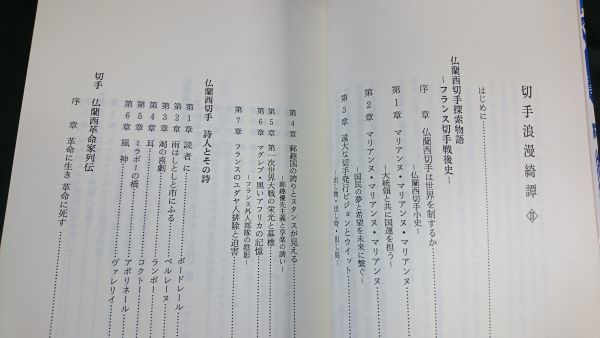 切手浪漫綺譚 Ⅱ
はじめに
仏蘭西切手探索物語
―フランス切手戦後史―
序 章 仏蘭西切手は世界を制するか
―仏蘭西切手小史―
第1章 マリアンヌ・マリアンヌ・マリアンヌ
―大統領と共に国運を担う―
第2章 マリアンヌ・マリアンヌ・マリアンヌ
―国民の夢と希望を未来に繋ぐ―
第3章 遠大な切手発行ビジョンとウイット
―出し物・出し時・出し処―
第4章 郵趣国の誇りとスタンスが見える
―郵趣優先主義と卒業の誘い―
第5章 第一次世界大戦の栄光と墓標
第6章 マグレブ・黒いアフリカの記憶
―フランス外人部隊の陰影―
第7章 フランスのユダヤ人排除と迫害
仏蘭西切手 詩人とその詩
第1章 読者に ボードレール
第2章 雨はしとしと市にふる ベルレーヌ
第3章 渇の喜劇 ランボー
第4章 耳 コクトー
第5章 ミラボーの橋 アポリネール
第6章 風神 ヴァレリイ
切手 仏蘭西革命家列伝
序 章 革命に生き 革命に死す